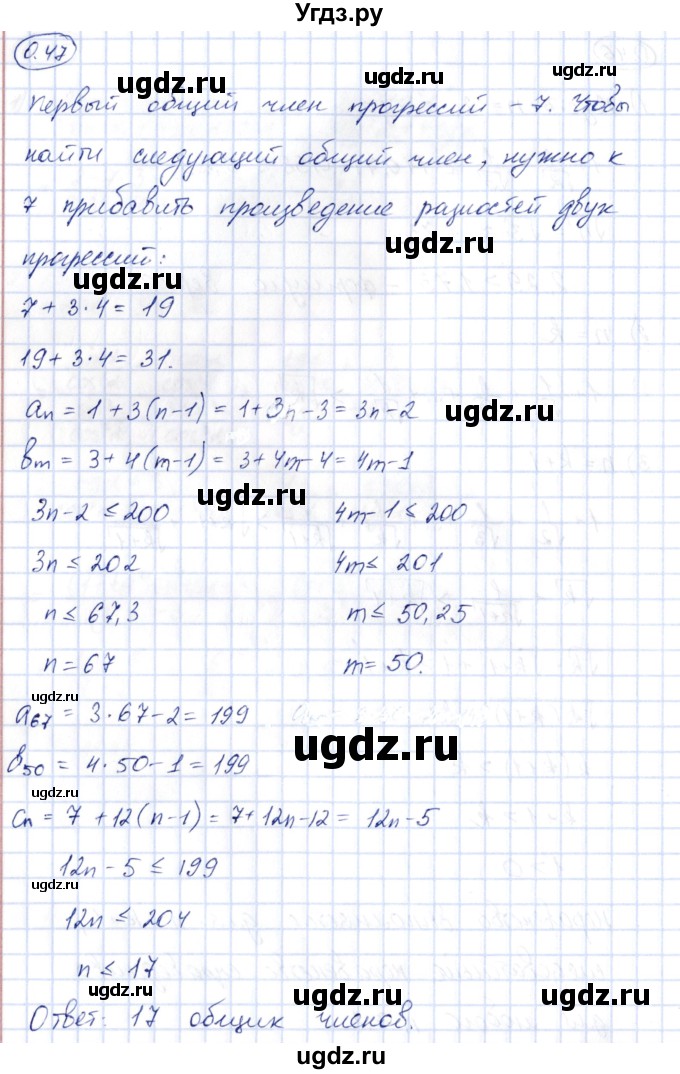 Угдз.ру
0.47
ugdz.ru
Первый общий член прогрессий - 7. Чтобы
ugdz.ru
найти следующий общий член, нужно к
7 прибавить произведение разностей двух
ugdz.ru
прогрессий:
7 + 3·4 = 19
19 + 3·4 = 31.
aₙ = 1 + 3(n-1) = 1 + 3n - 3 = 3n - 2
ugdz.ru
bₘ = 3 + 4(m-1) = 3 + 4m - 4 = 4m - 1
ugdz.ru
3n - 2 ≤ 200 4m - 1 ≤ 200
3n ≤ 202 4m ≤ 201
n ≤ 67,3 m ≤ 50,25
n = 67 m = 50.
ugdz.ru
a₆₇ = 3·67 - 2 = 199
ugdz.ru
b₅₀ = 4·50 - 1 = 199
ugdz.ru
cₙ = 7 + 12(n-1) = 7 + 12n - 12 = 12n - 5
12n - 5 ≤ 199
ugdz.ru
12n ≤ 204
n ≤ 17
ugdz.ru
ugdz.ru
Ответ: 17 общих членов.
ugdz.ru